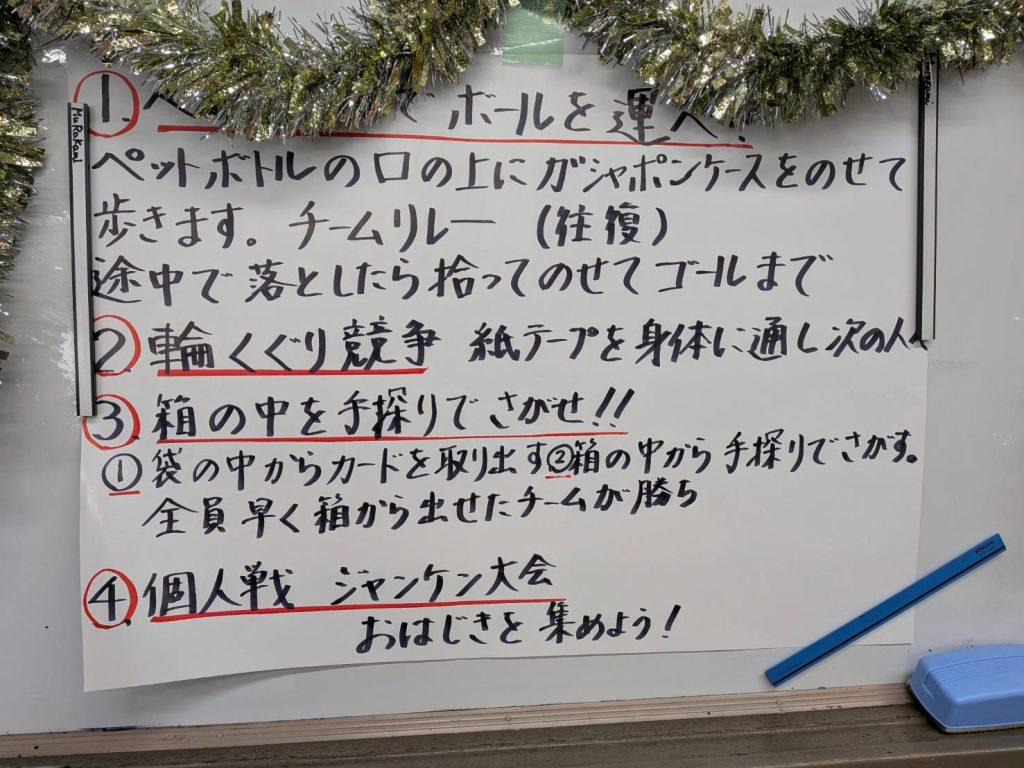 ①. ボールを運べ!
ペットボトルの口の上にガシャポンケースをのせて
歩きます。チームリレー (往復)
途中で落としたら拾ってのせてゴールまで
②. 輪くぐり競争 紙テープを身体に通し次の人へ
③. 箱の中を手探りでさがせ!!
① 袋の中からカードを取り出す②箱の中から手探りでさがす。
全員早く箱から出せたチームが勝ち
④. 個人戦 ジャンケン大会
おはじきを集めよう!
MuRakami